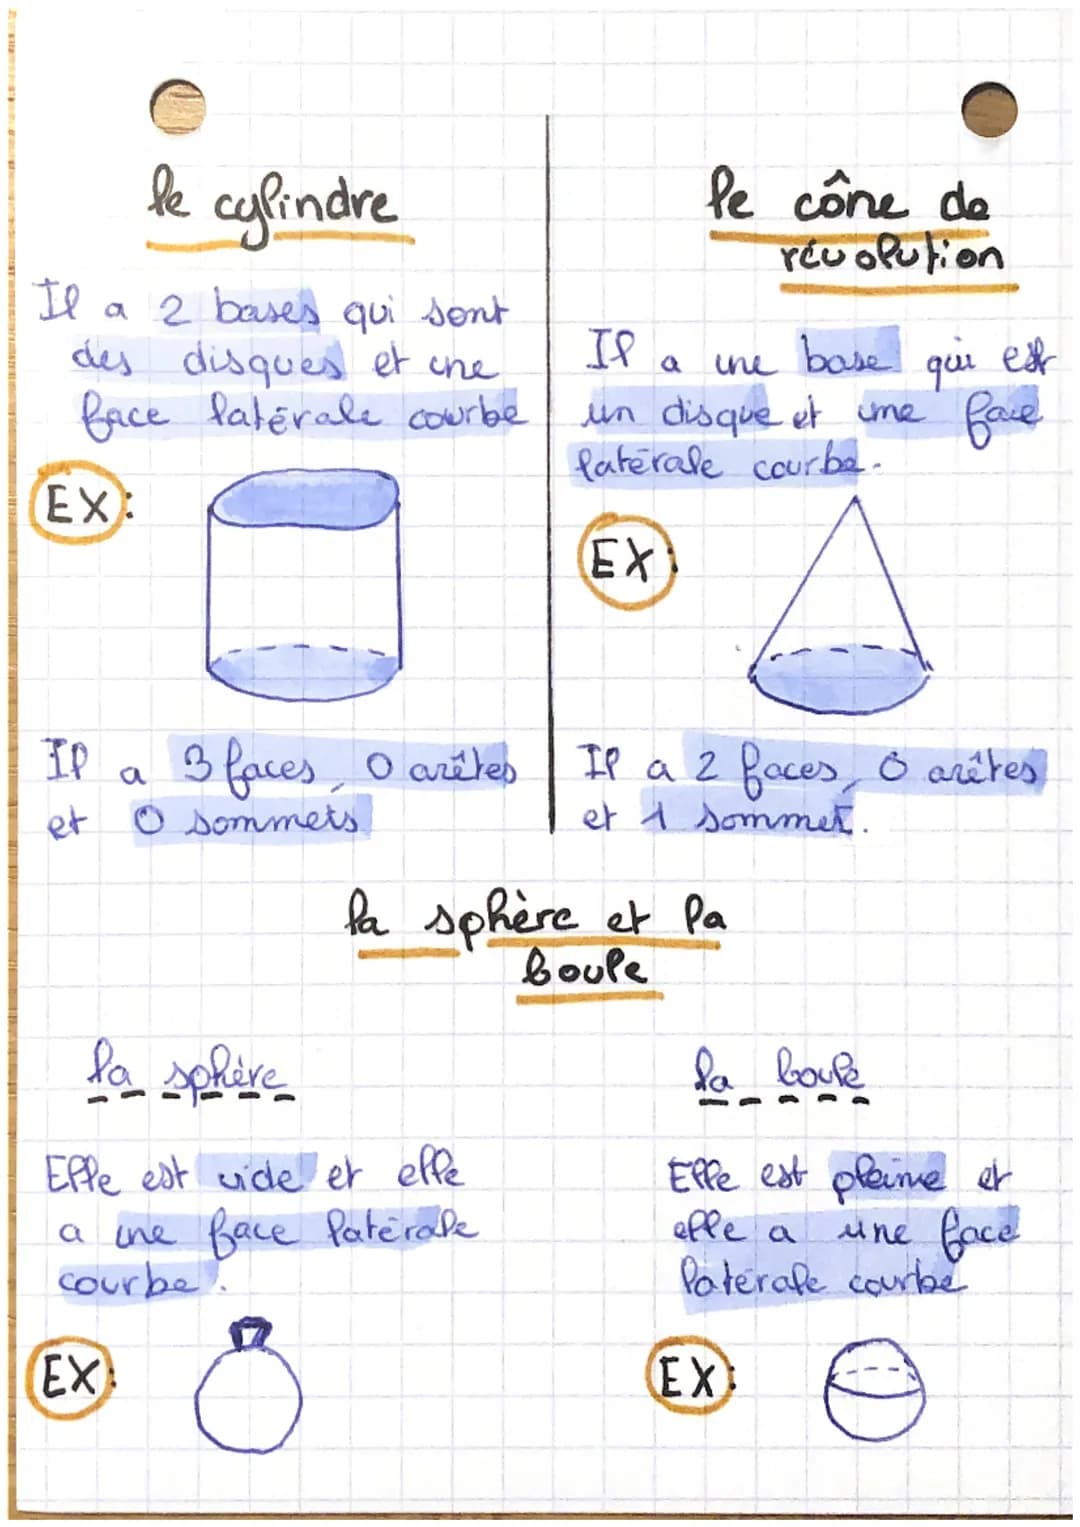 le cylindre
Il a 2 bases qui sont
des disques et une
face latérale courbe
EX:
Il a 3 faces, 0 arêtes
et 0 sommets
le cône de
révolution
Il a une base qui est
un disque et une face
latérale courbe.
EX:
Il a 2 faces, 0 arêtes
et 1 sommet.
la sphère et la
boule
la sphère
Elle est vide et elle
a une face latérale
courbe.
EX:
la boule
Elle est pleine et
elle a une face
latérale courbe
EX: